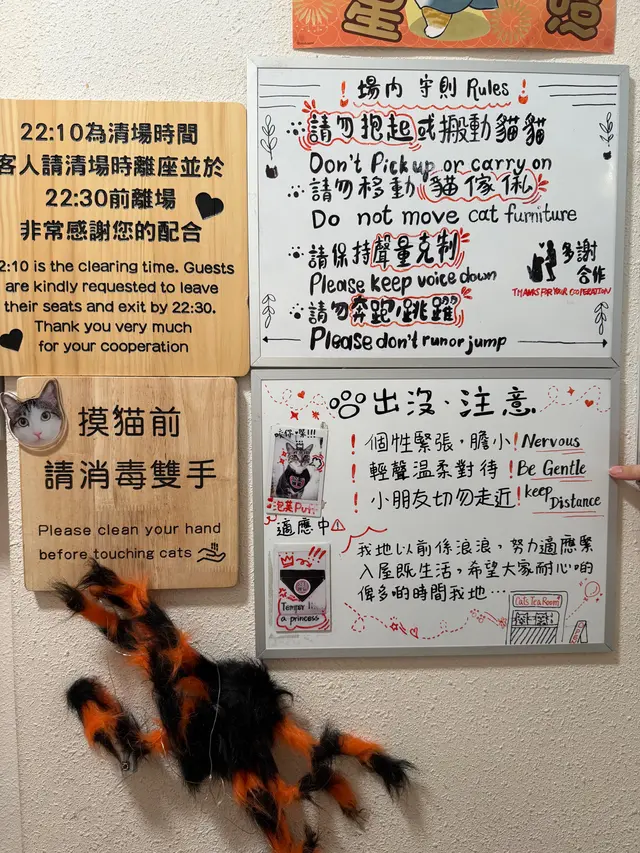 22:10為清場時間
客人請清場時離座並於
22:30前離場
非常感謝您的配合
2:10 is the clearing time. Guests
are kindly requested to leave
their seats and exit by 22:30.
Thank you very much
for your cooperation
摸猫前
請消毒雙手
Please clean your hand
before touching cats
場內 守則 Rules
請勿抱起或搬動貓貓
Don't Pick up or carry on
請勿移動貓傢俬
Do not move cat furniture
請保持聲量克制
Please keep voice down
請勿奔跑/跳躍
Please don't run or jump
多謝
合作
THANKS FOR YOUR COOPERATION
出沒、注意
個性緊張，膽小! Nervous
輕聲溫柔對待! Be Gentle
小朋友切勿走近! keep Distance
泡芙 Puff
適應中
我地以前係浪浪，努力適應緊
入屋既生活，希望大家耐心啲
俾多啲時間我地…
Temper like
a princess
Cats Tea Room